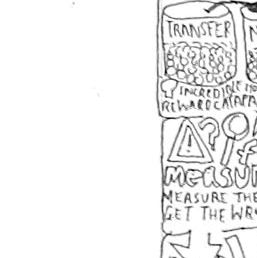 TRANSFER
INCREDIBLE
REWARD CA
if
measur
MEASURE THE
GET THE WR